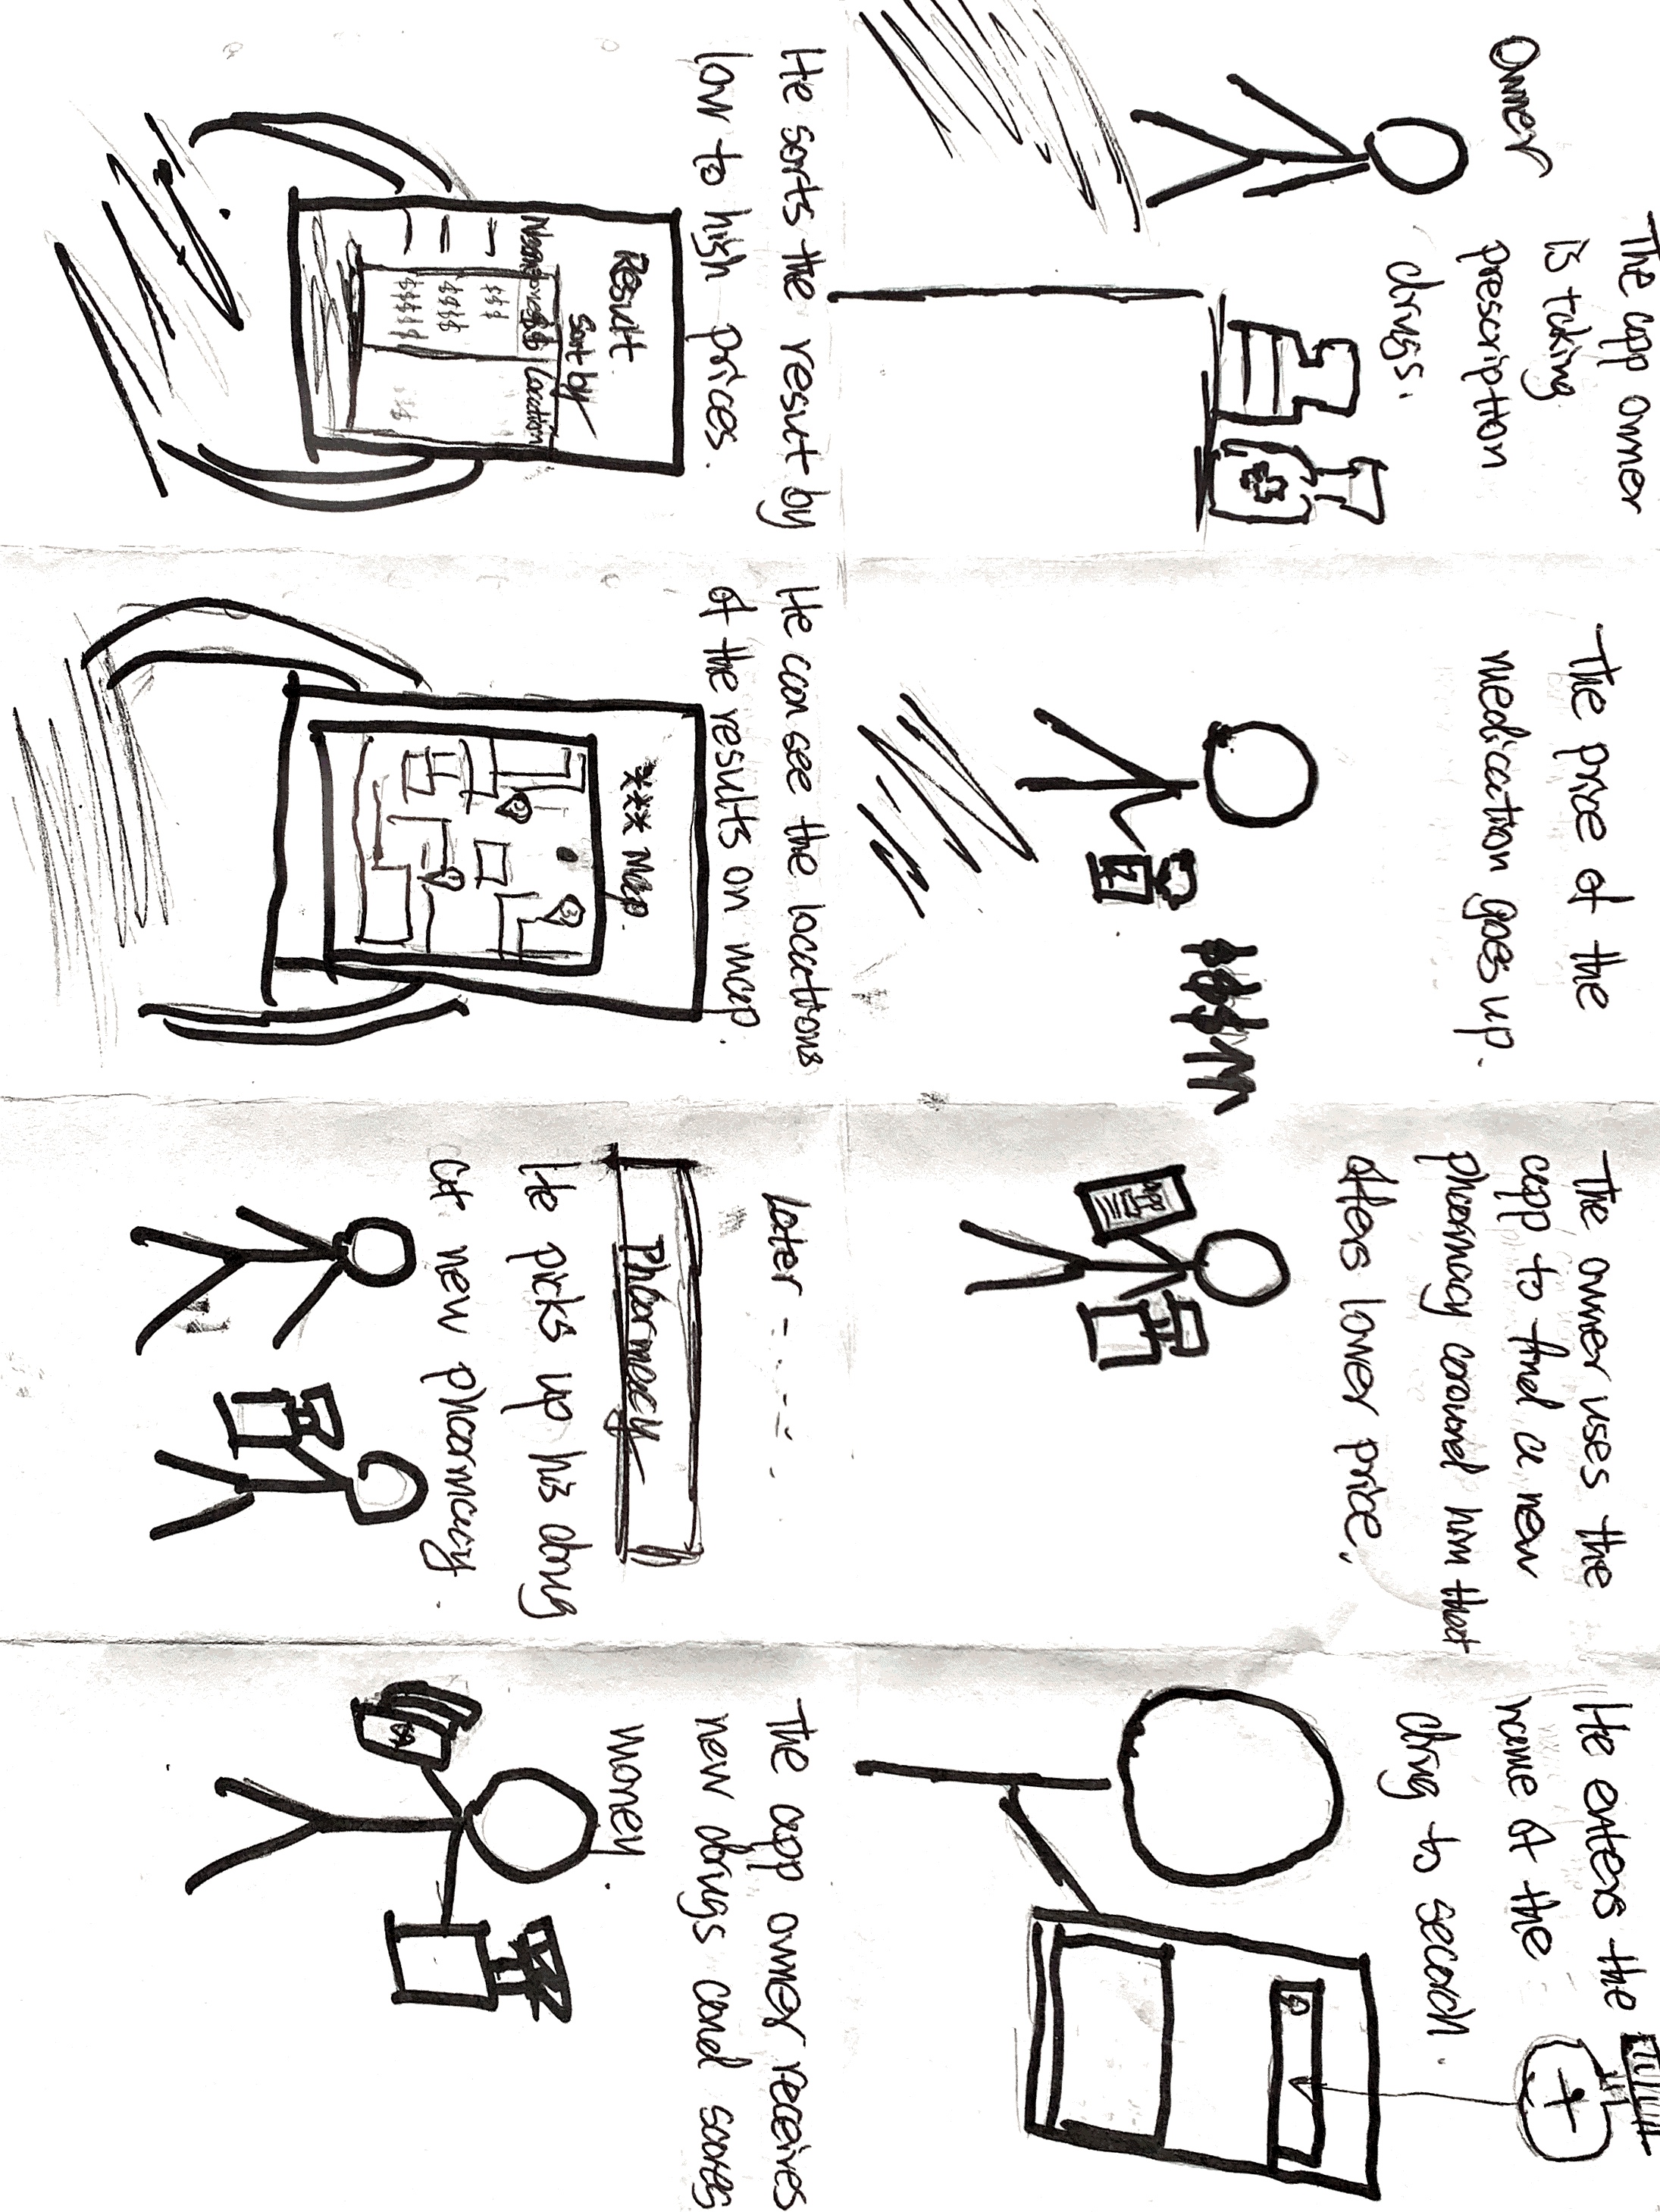 Owner
The app owner
is taking
prescription
drugs.
The price of the
medication goes up.
$$$$
The owner uses the
app to find a new
pharmacy around him that
offers lower price.
APP
He enters the
name of the
drug to search.
He sorts the result by
low to high prices.
Result
Sort by
Location
$$$
$$$$
$$$$$
$$$
He can see the locations
of the results on map.
*** Map.
2
1
3
Later - - - - - .
Pharmacy
He picks up his drug
at new pharmacy.
The app owner receives
new drugs and saves
money.